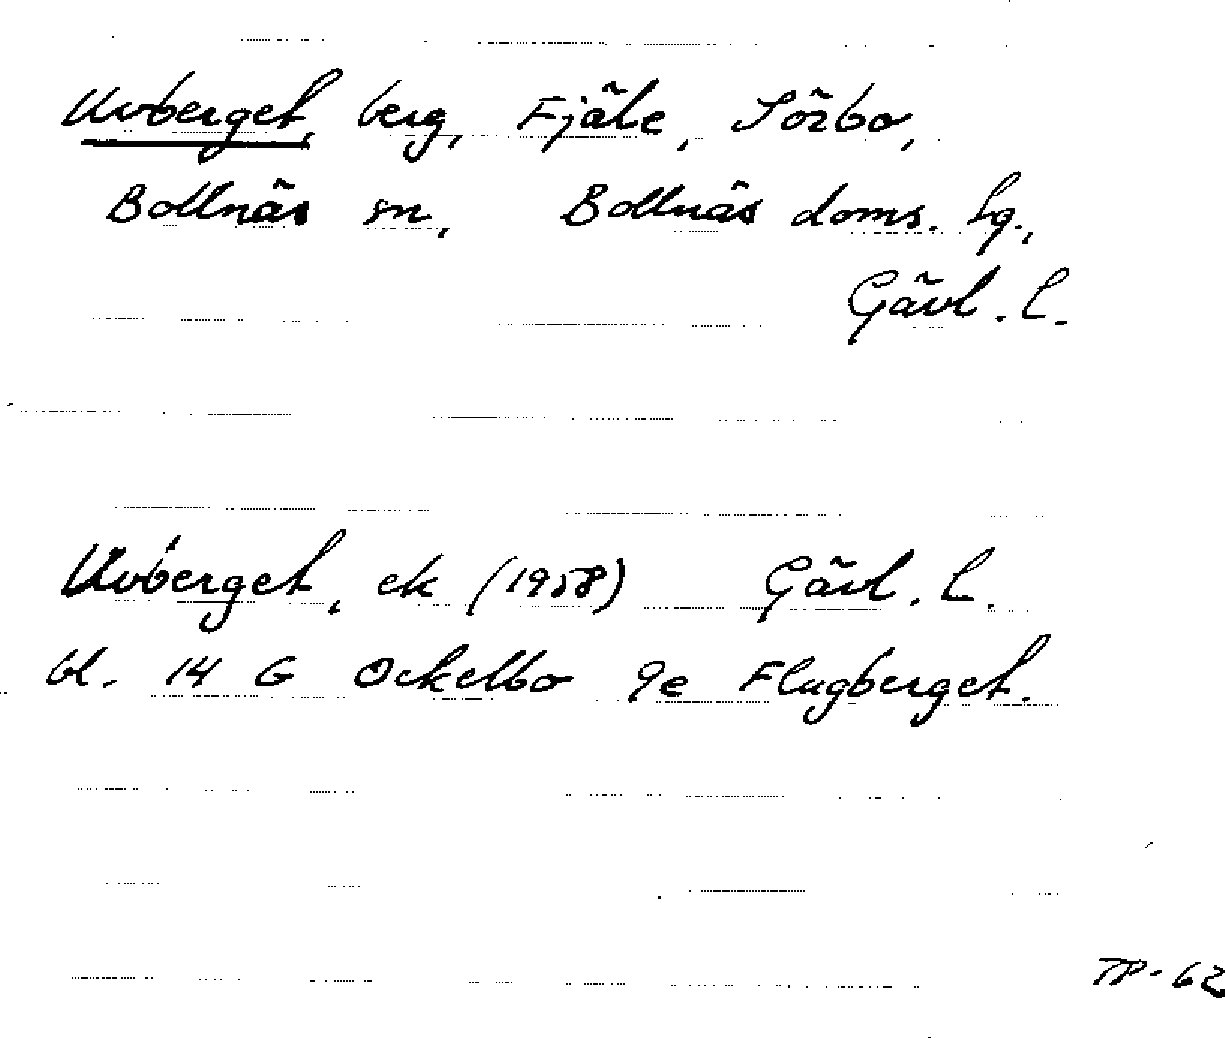 Uvberget, berg, Fjäle, Sörbo,
Bollnäs sn, Bollnäs doms. lg.,
Gävl. l.
Uvberget, ek (1958) Gävl. l.
bl. 14 G Ockelbo 9e Flugberget.
TP-62